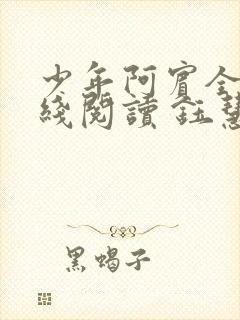 少年阿賓全
綫閱讀 鈺慧
黑蝎子